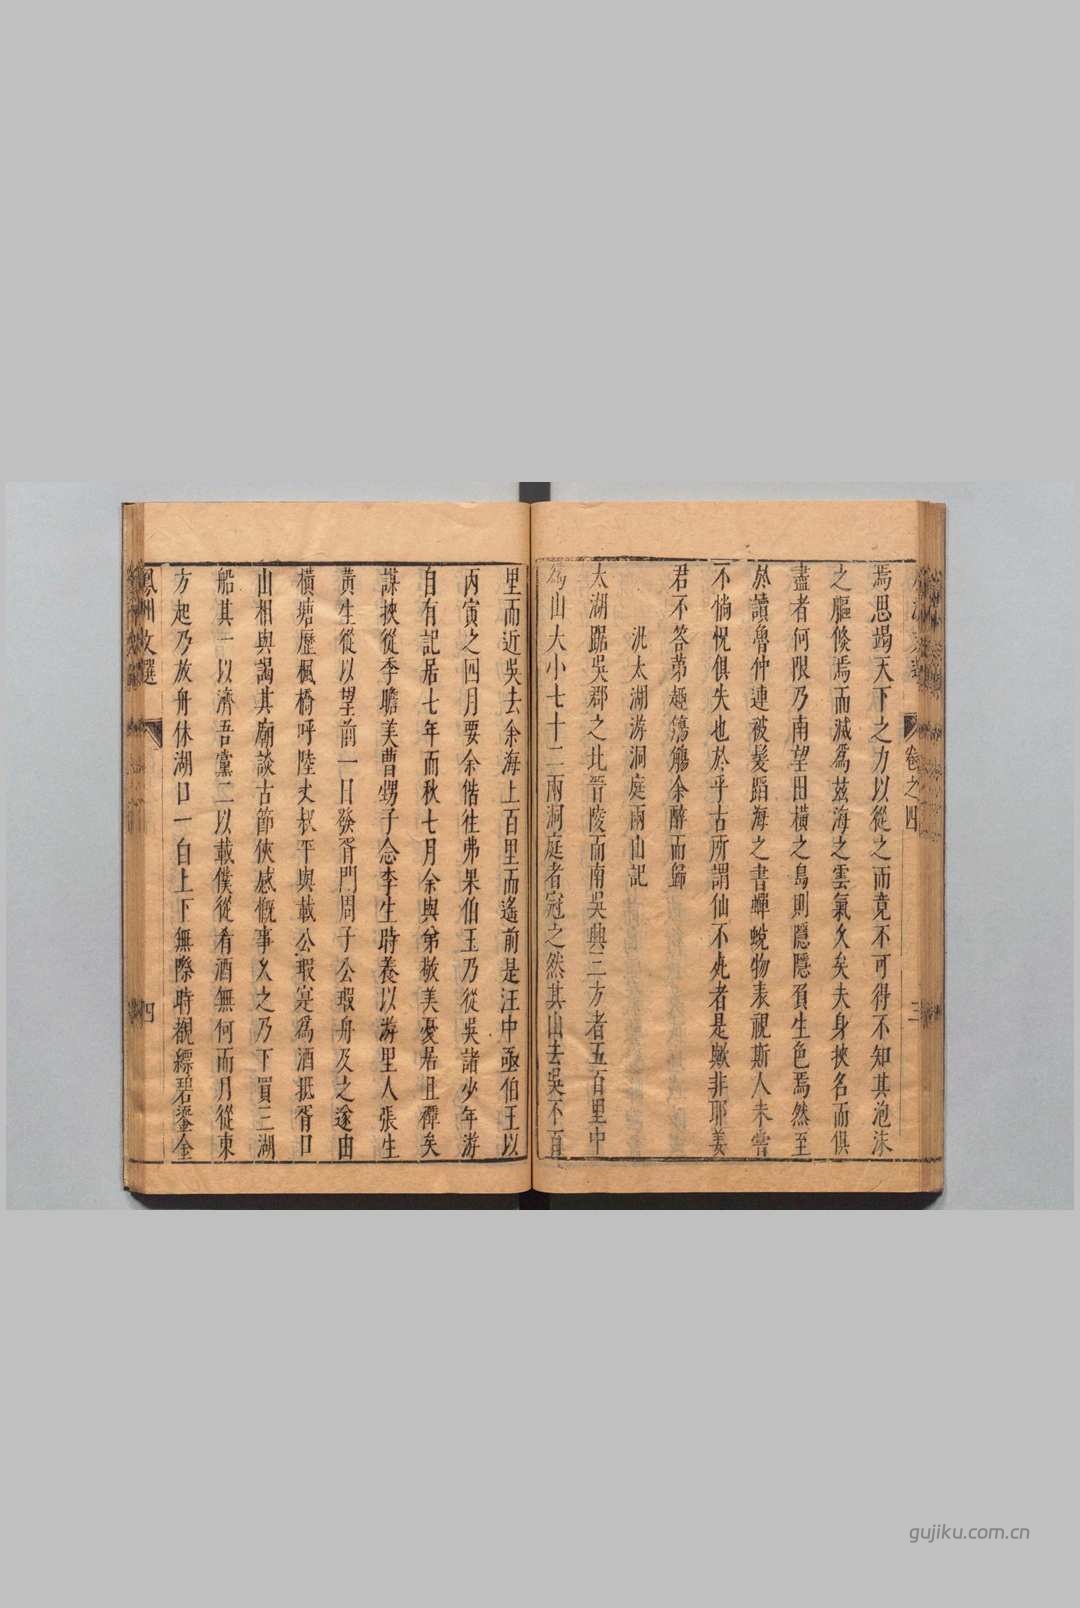 焉思竭天下之力以從之而竟不可得不知其泡沫
之軀倏焉而滅爲茲海之雲氣久矣夫身挾名而俱
盡者何限乃南望田橫之島則隱隱負生色焉然至
於讀魯仲連被髮蹈海之書蟬蛻物表視斯人未嘗
不惝怳俱失也於乎古所謂仙不死者是歟非耶姜
君不答第趣觴觴余醉而歸
泛太湖游洞庭兩山記
太湖踞吳郡之北晉陵而南吳興三方者五百里中
爲山大小七十二兩洞庭者冠之然其山去吳不百
里而近吳去余海上百里而遙前是汪中丞伯玉以
丙寅之四月要余偕往弗果伯玉乃從吳諸少年游
自有記居七年而秋七月余與弟敬美憂居且禫矣
謀挾從季瞻美曹甥子念李生時養以游里人張生
黃生從以望前一日發胥門周子公瑕舟及之遂由
橫塘歷楓橋呼陸丈叔平與載公瑕寔爲酒抵胥口
山相與謁其廟談古節俠感慨事久之乃下買三湖
船其一以濟吾黨二以載僕從肴酒無何而月從東
方起乃放舟休湖口一白上下無際時覩縹碧鎏金
鳳洲文選
四
卷之四
三
gujiku.com.cn